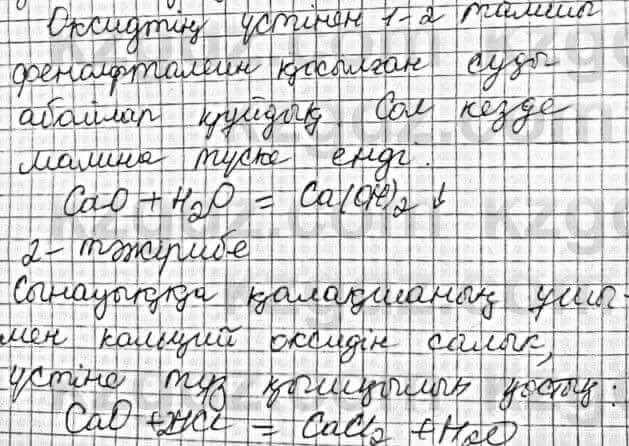 Оксидтің үстінен 1-2 тамшы
фенолфталеин қосылған суды
абайлап құйдық. Сол кезде
малина түске енді.
CaO + H₂O = Ca(OH)₂ ↓
2-тәжірибе
Сынауыққа қалақшаның ұшы-
мен кальций оксидін салып,
үстіне тұз қышқылын қостық:
CaO + 2HCl = CaCl₂ + H₂O